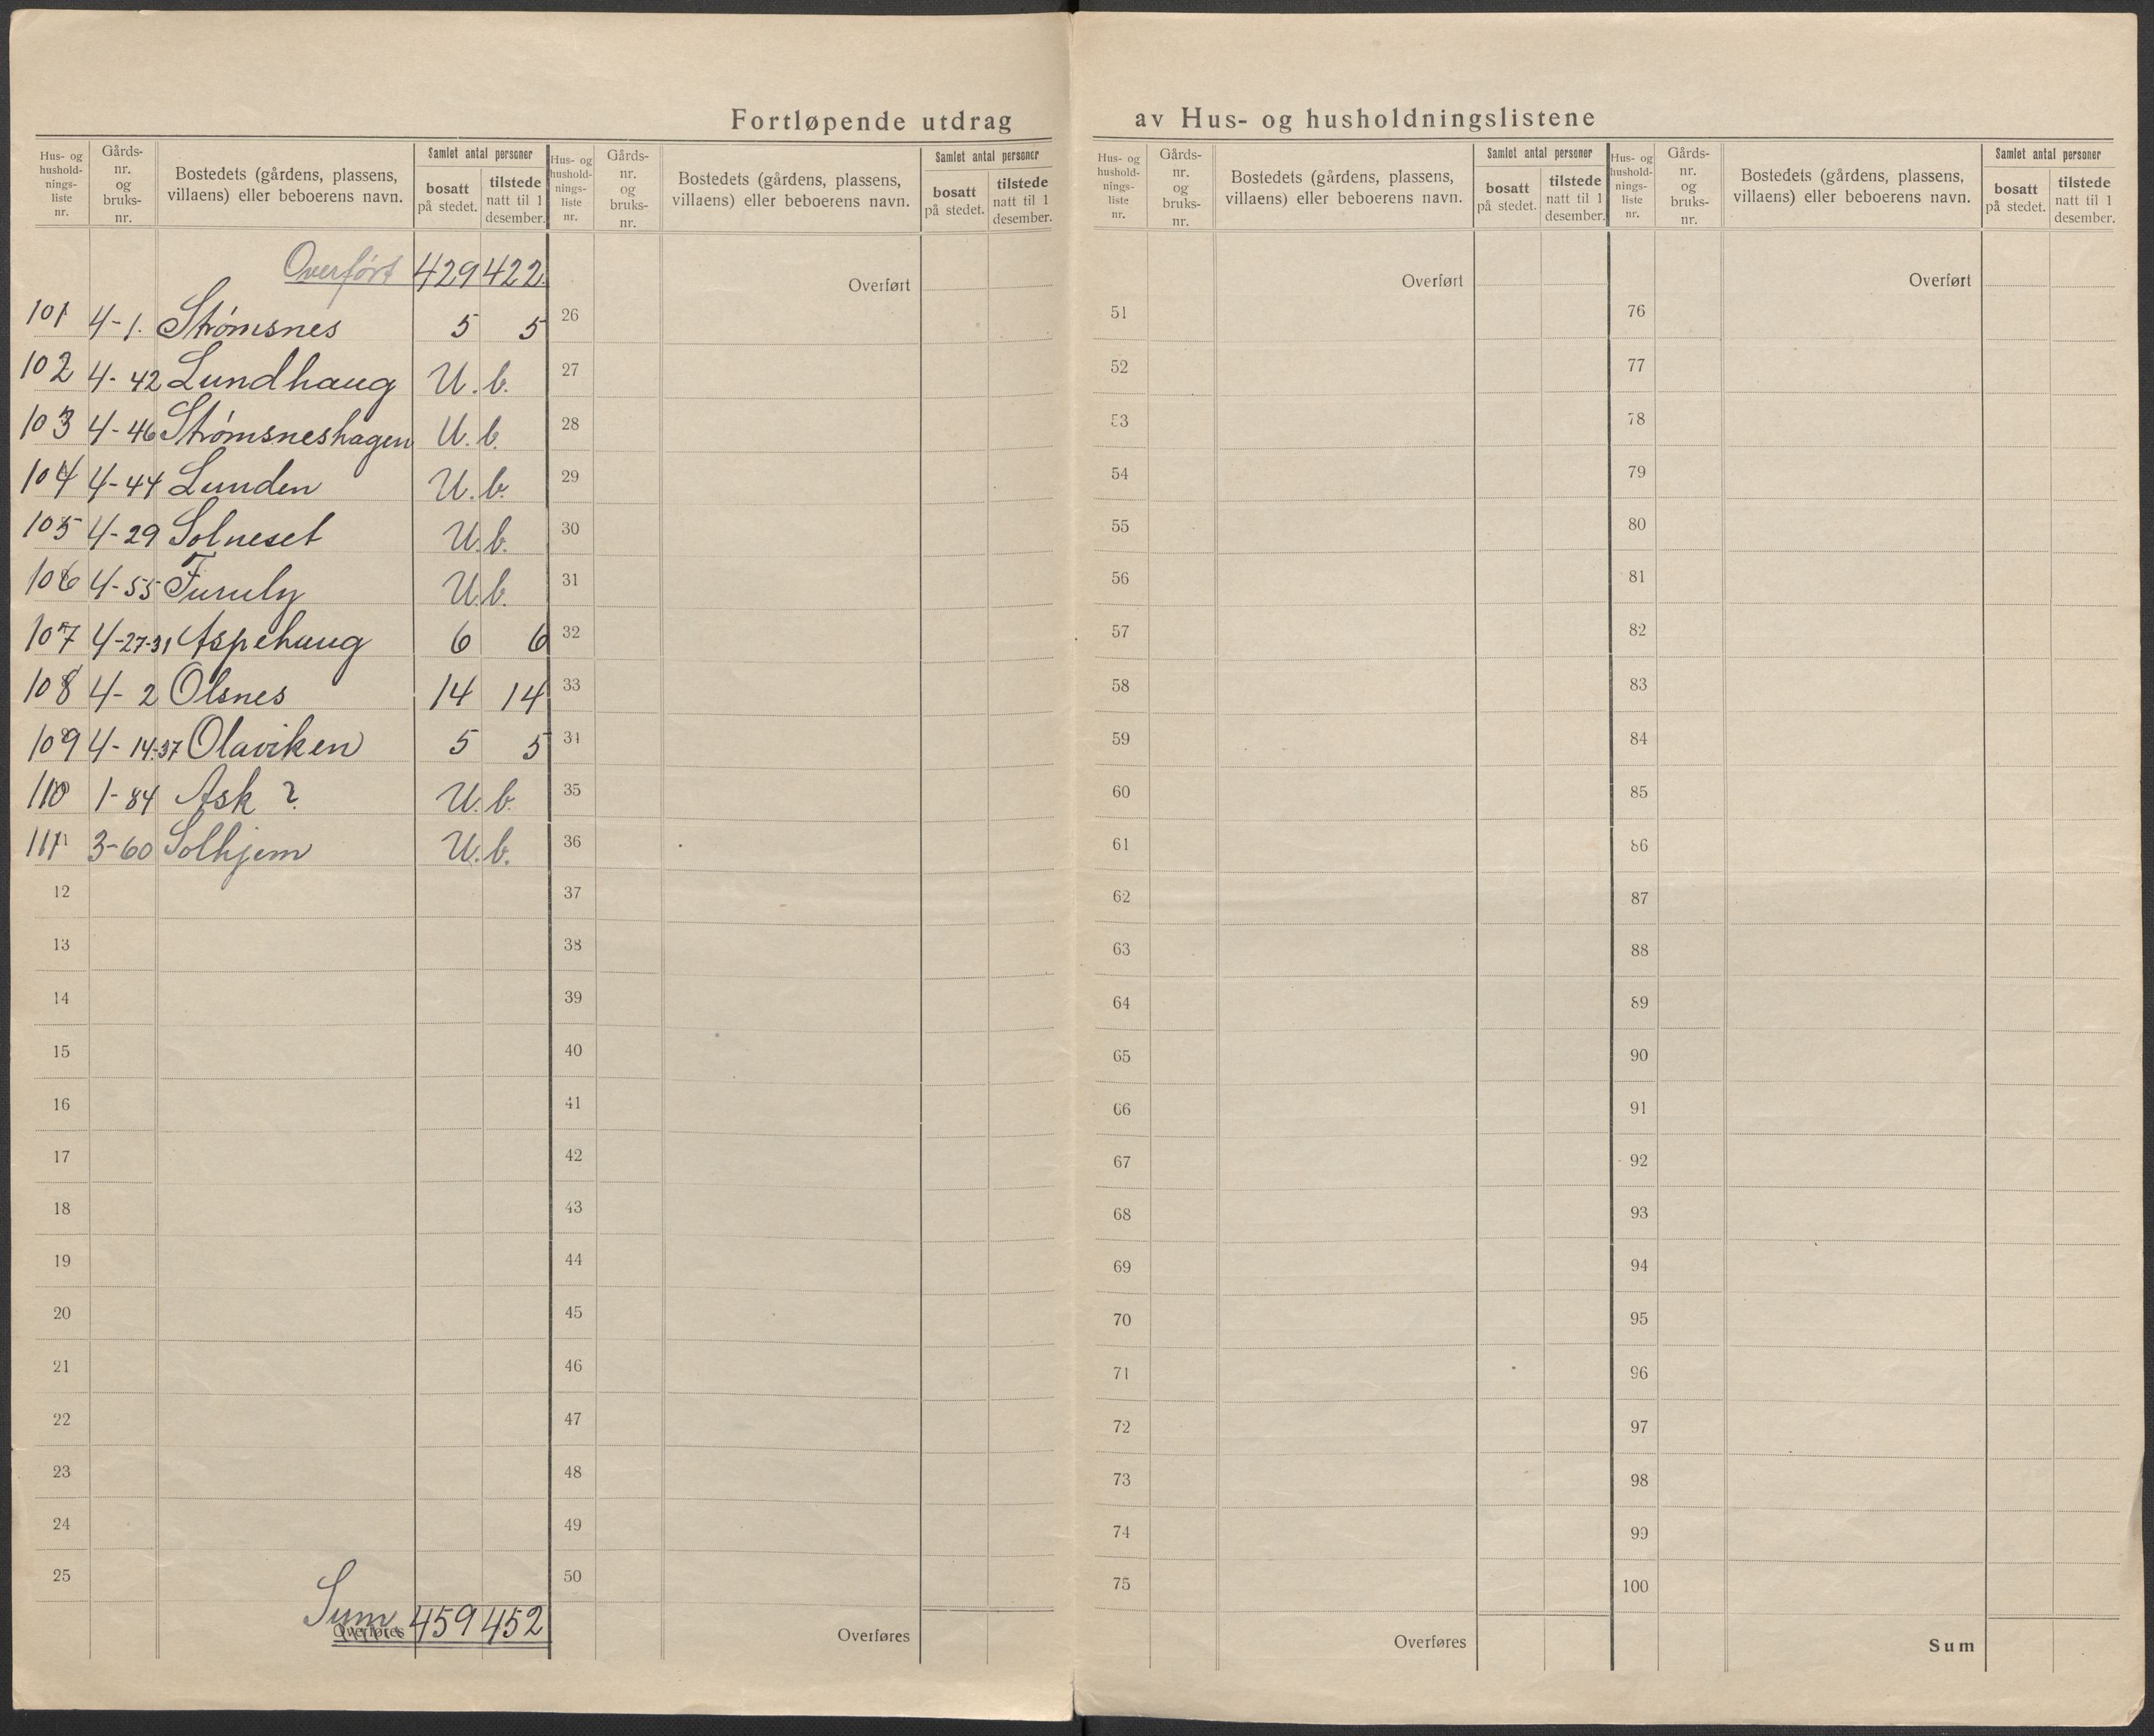 Fortløpende utdrag av Hus- og husholdningslistene
Hus- og hushold-nings-liste nr. Gårds-nr. og bruks-nr. Bostedets (gårdens, plassens, villaens) eller beboerens navn. Samlet antal personer bosatt på stedet. tilstede natt til 1 desember.
Overført 429 422
101 4-1. Strømsnes 5 5
102 4-42 Lundhaug U.b.
103 4-46 Strømsneshagen U.b.
104 4-44 Lunden U.b.
105 4-29 Solneset U.b.
106 4-55 Furuly U.b.
107 4-27-31 Aspehaug 6 6
108 4-2 Olsnes 14 14
109 4-14-37 Olaviken 5 5
110 1-84 Ask ? U.b.
111 3-60 Solhjem U.b.
12
13
14
15
16
17
18
19
20
21
22
23
24
25
Sum 459 452
Overføres
Hus- og hushold-nings-liste nr. Gårds-nr. og bruks-nr. Bostedets (gårdens, plassens, villaens) eller beboerens navn. Samlet antal personer bosatt på stedet. tilstede natt til 1 desember.
Overført
26
27
28
29
30
31
32
33
34
35
36
37
38
39
40
41
42
43
44
45
46
47
48
49
50
Overføres
Hus- og hushold-nings-liste nr. Gårds-nr. og bruks-nr. Bostedets (gårdens, plassens, villaens) eller beboerens navn. Samlet antal personer bosatt på stedet. tilstede natt til 1 desember.
Overført
51
52
53
54
55
56
57
58
59
60
61
62
63
64
65
66
67
68
69
70
71
72
73
74
75
Overføres
Hus- og hushold-nings-liste nr. Gårds-nr. og bruks-nr. Bostedets (gårdens, plassens, villaens) eller beboerens navn. Samlet antal personer bosatt på stedet. tilstede natt til 1 desember.
Overført
76
77
78
79
80
81
82
83
84
85
86
87
88
89
90
91
92
93
94
95
96
97
98
99
100
Sum